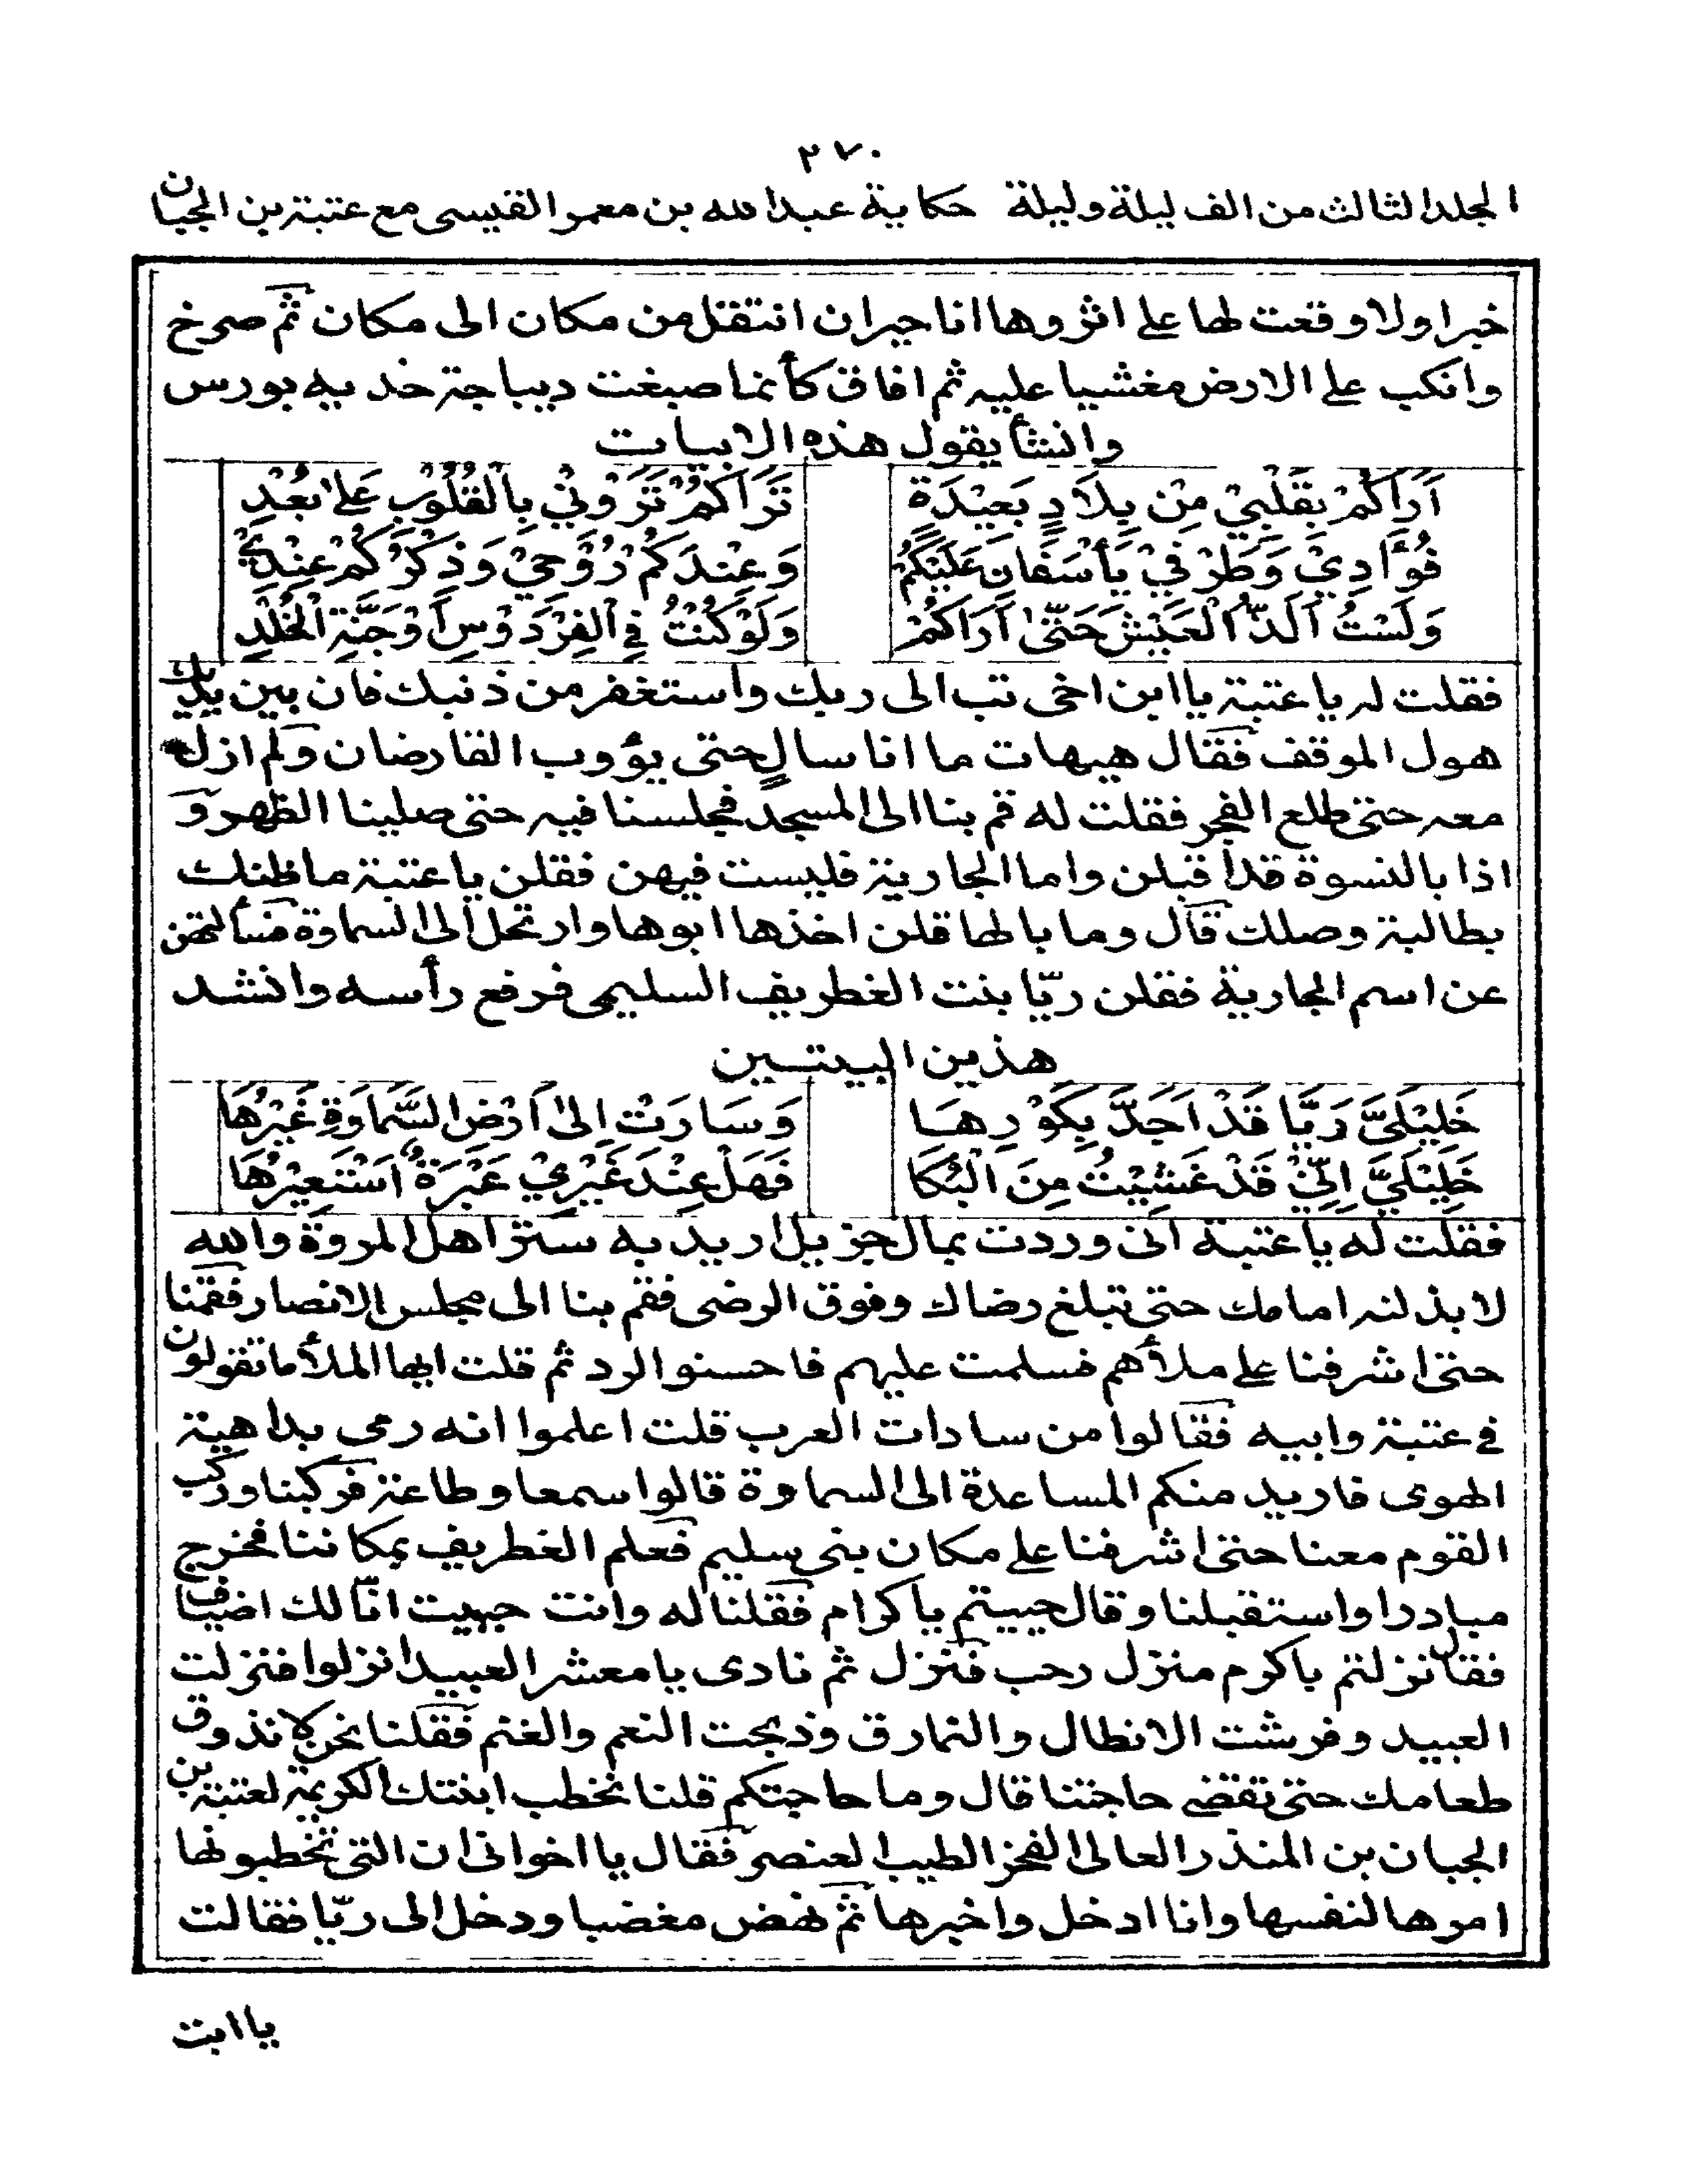 ٢٧٠
المجلد الثالث من الف ليلة وليلة حكاية عبد الله بن معمر القيسى مع عتبة بن الجبان
خبرا ولا وقعت لها على اثر وها انا حيران انتقل من مكان الى مكان ثم صرخ
وانكب على الارض مغشيا عليه ثم افاق كأنما صبغت ديباجة خديه بورس
وانشأ يقول هذه الابيات
اَرَاكُمْ بِقَلْبِيْ مِنْ بِلَادٍ بَعِيْدَةٍ تَرَاكُمْ تَرَوْنِيْ بِالْقُلُوْبِ عَلىٰ بُعْدِ
فُؤَادِيْ وَطَرْفِيْ يَأْسَفَانِ عَلَيْكُمُ وَعِنْدَكُمْ رُوْحِيْ وَذِكْرُكُمْ عِنْدِيْ
وَلَسْتُ اَلَذُّ الْعَيْشَ حَتّىٰ اَرَاكُمْ وَلَوْ كُنْتُ فِي الْفِرْدَوْسِ اَوْ جَنَّةِ الْخُلْدِ
فقلت له يا عتبة يا ابن اخى تب الى ربك واستغفر من ذنبك فان بين يديك
هول الموقف فقال هيهات ما انا سالٍ حتى يؤوب القارضان ولم ازل
معه حتى طلع الفجر فقلت له قم بنا الى المسجد فجلسنا فيه حتى صلينا الظهر و
اذا بالنسوة قد اقبلن واما الجارية فليست فيهن فقلن يا عتبة ما ظنك
بطالبة وصلك قال وما بالها قلن اخذها ابوها وارتحل الى السماوة فسألتهن
عن اسم الجارية فقلن ريّا بنت الغطريف السليمى فرفع رأسه وانشد
هذين البيتين
خَلِيْلَيَّ رَيَّا قَدْ اَجَدَّ بِكَوْرِهَا وَسَارَتْ اِلىٰ اَرْضِ السَّمَاوَةِ غَيْرُهَا
خَلِيْلَيَّ اِنِّيْ قَدْ غَشِيْتُ مِنَ الْبُكَا فَهَلْ عِنْدَ غَيْرِيْ عَبْرَةٌ اَسْتَعِيْرُهَا
فقلت له يا عتبة انى وردت بمال جزيل اريد به ستر اهل المروة والله
لابذلنه امامك حتى تبلغ رضاك وفوق الرضى فقم بنا الى مجلس الانصار فقمنا
حتى اشرفنا على ملأهم فسلمت عليهم فاحسنوا الرد ثم قلت ايها الملأ ما تقولون
فى عتبة وابيه فقالوا من سادات العرب قلت اعلموا انه رمى بداهية
الهوى فاريد منكم المساعدة الى السماوة قالوا سمعا وطاعة فركبنا وركب
القوم معنا حتى اشرفنا على مكان بنى سليم فعلم الغطريف بمكاننا فخرج
مبادرا واستقبلنا وقال حييتم يا كرام فقلنا له وانت حييت انّا لك اضياف
فقال نزلتم باكرم منزل رحب فنزل ثم نادى يا معشر العبيد انزلوا فنزلت
العبيد وفرشت الانطال والنمارق وذبحت النعم والغنم فقلنا نحن لا نذوق
طعامك حتى تقضى حاجتنا قال وما حاجتكم قلنا نخطب ابنتك الكريمة لعتبة بن
الجبان بن المنذر العالى الفخر الطيب العنصر فقال يا اخوانى ان التى تخطبونها
امرها لنفسها وانا ادخل واخبرها ثم نهض مغضبا ودخل الى ريّا فقالت
يا ابت